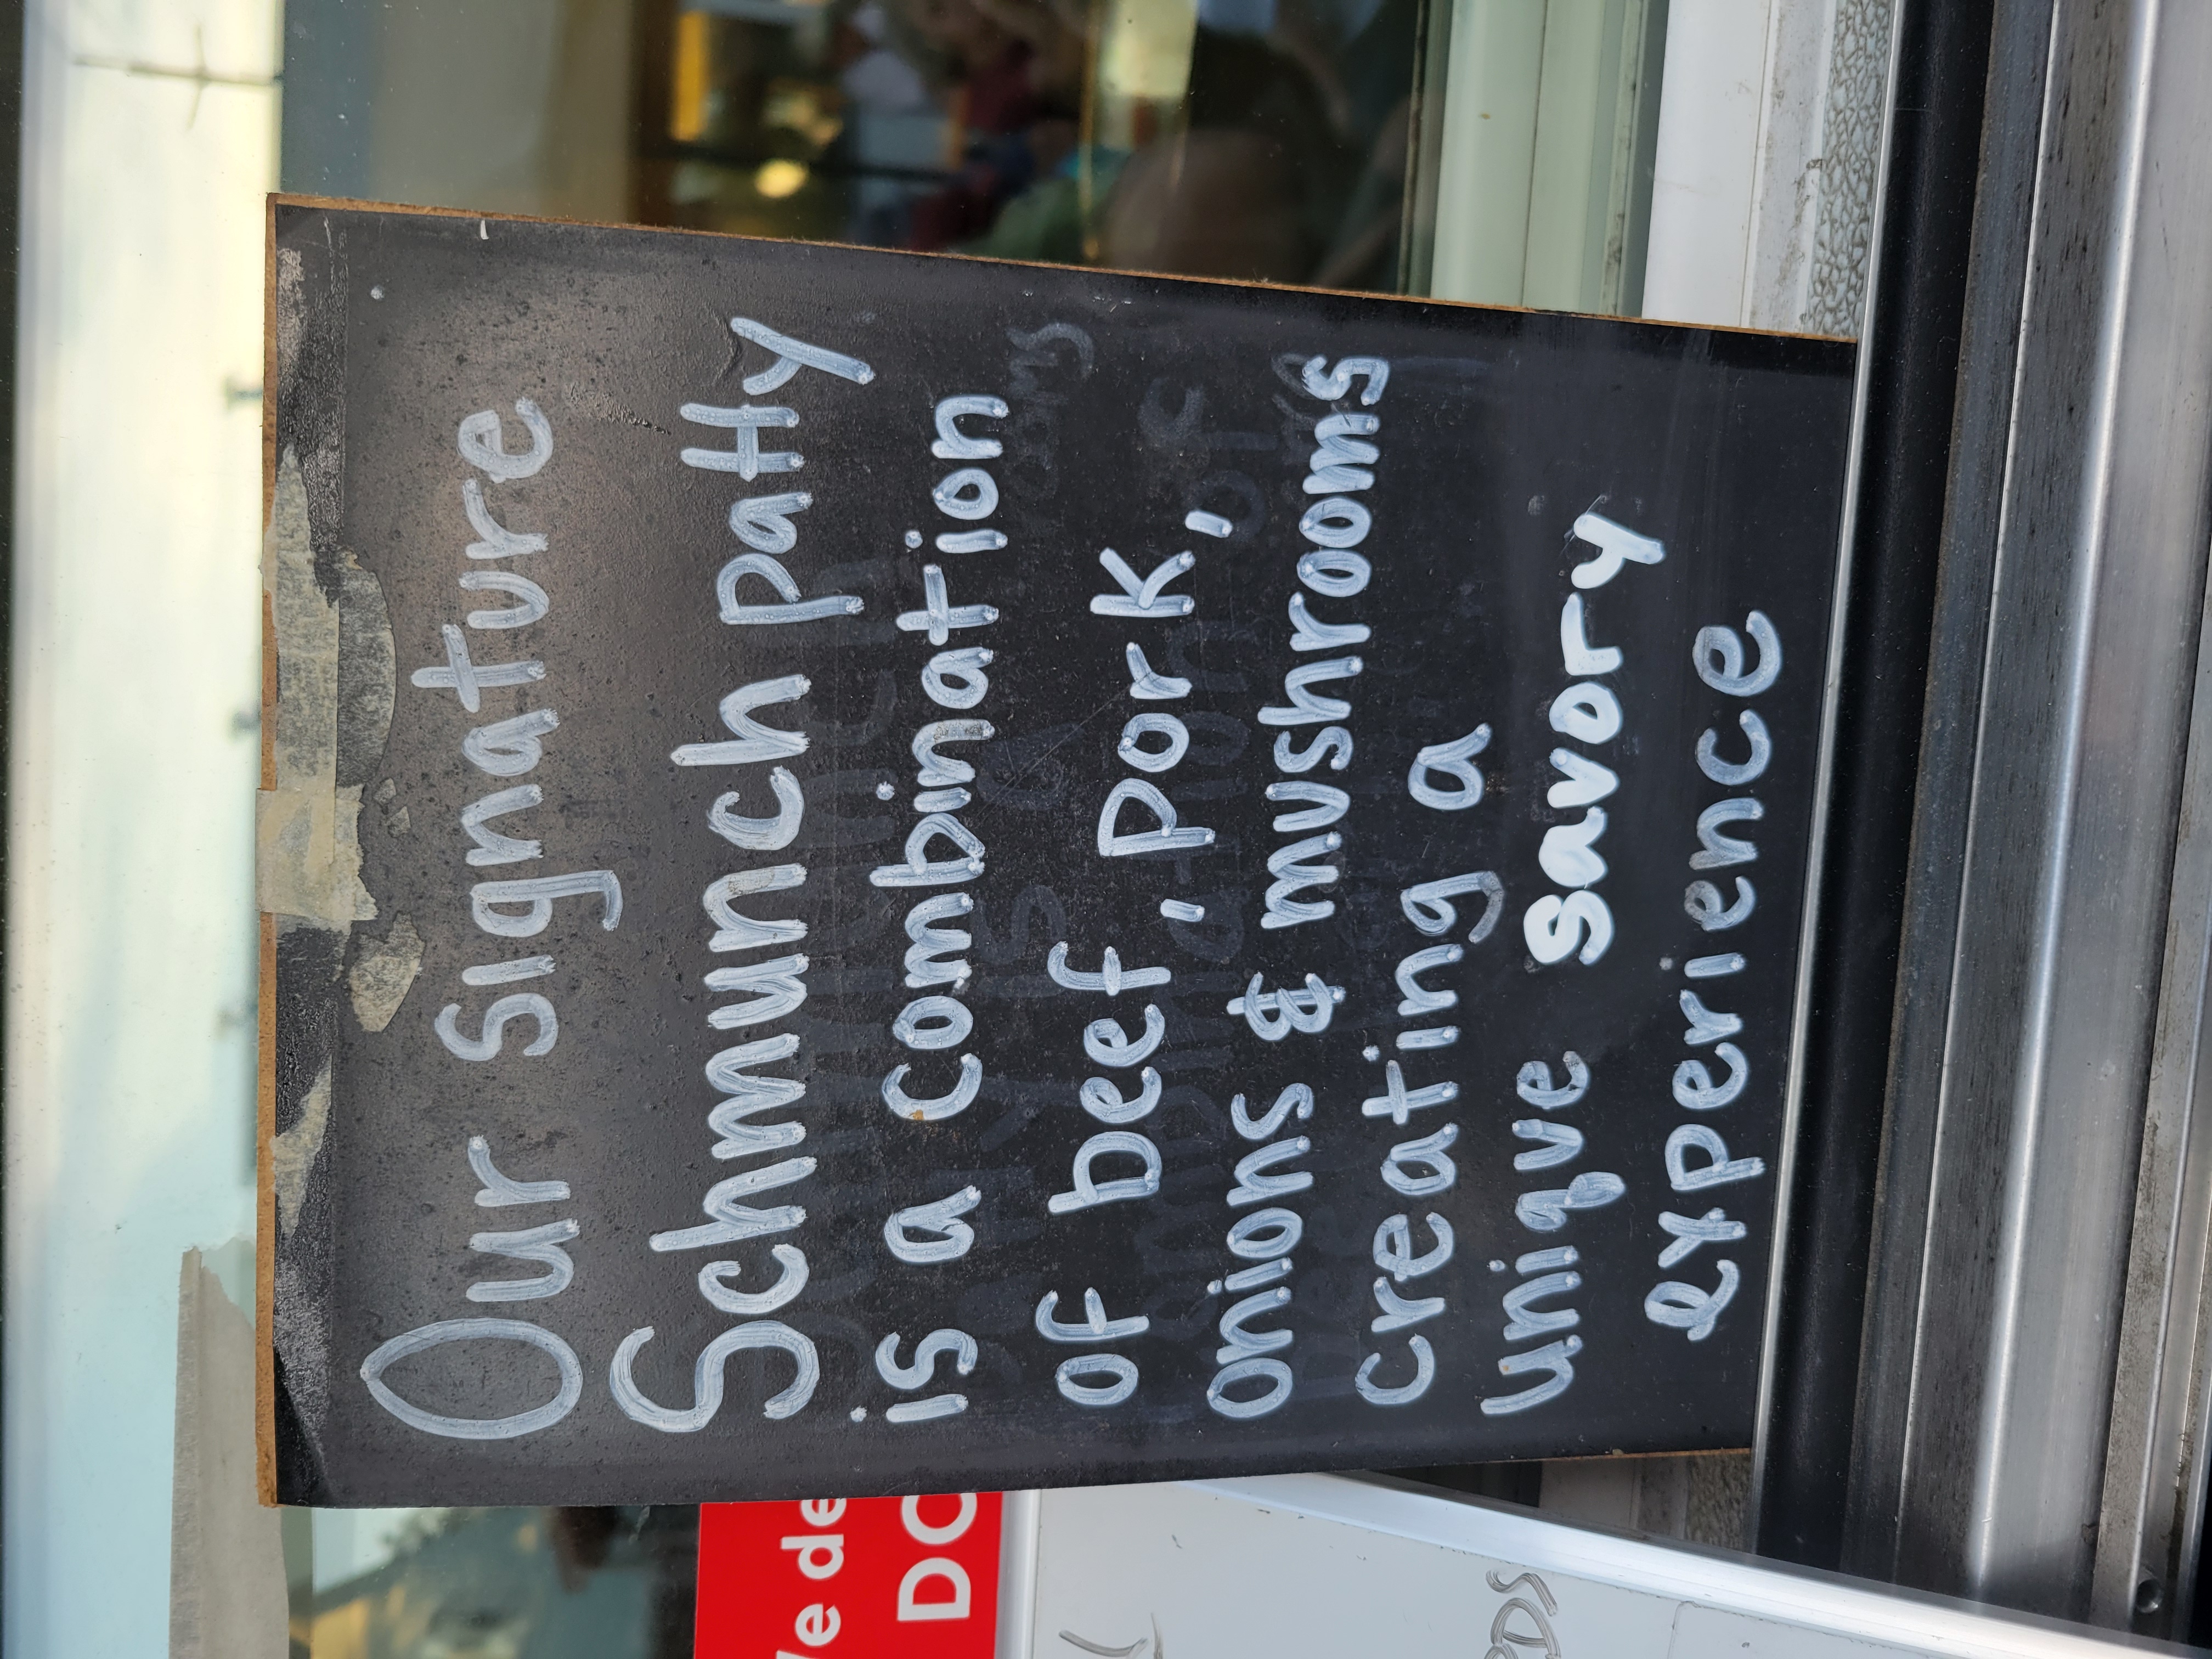 Our Signature
Schmunch patty
is a combination
of beef, pork,
onions & mushrooms
creating a
unique savory
experience
le de
DO